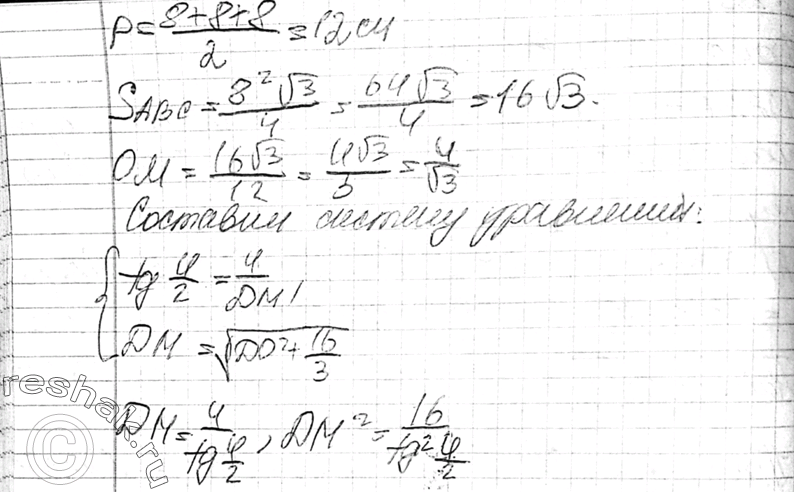 p = (8+8+8)/2 = 12 см
S_ABC = 8²√3/4 = 64√3/4 = 16√3.
OM = 16√3/12 = 4√3/3 = 4/√3
Составим систему уравнений:
{ tg φ/2 = 4/DM,
DM = √(DO² + 16/3)
DM = 4/(tg φ/2), DM² = 16/(tg² φ/2)
© reshak.ru